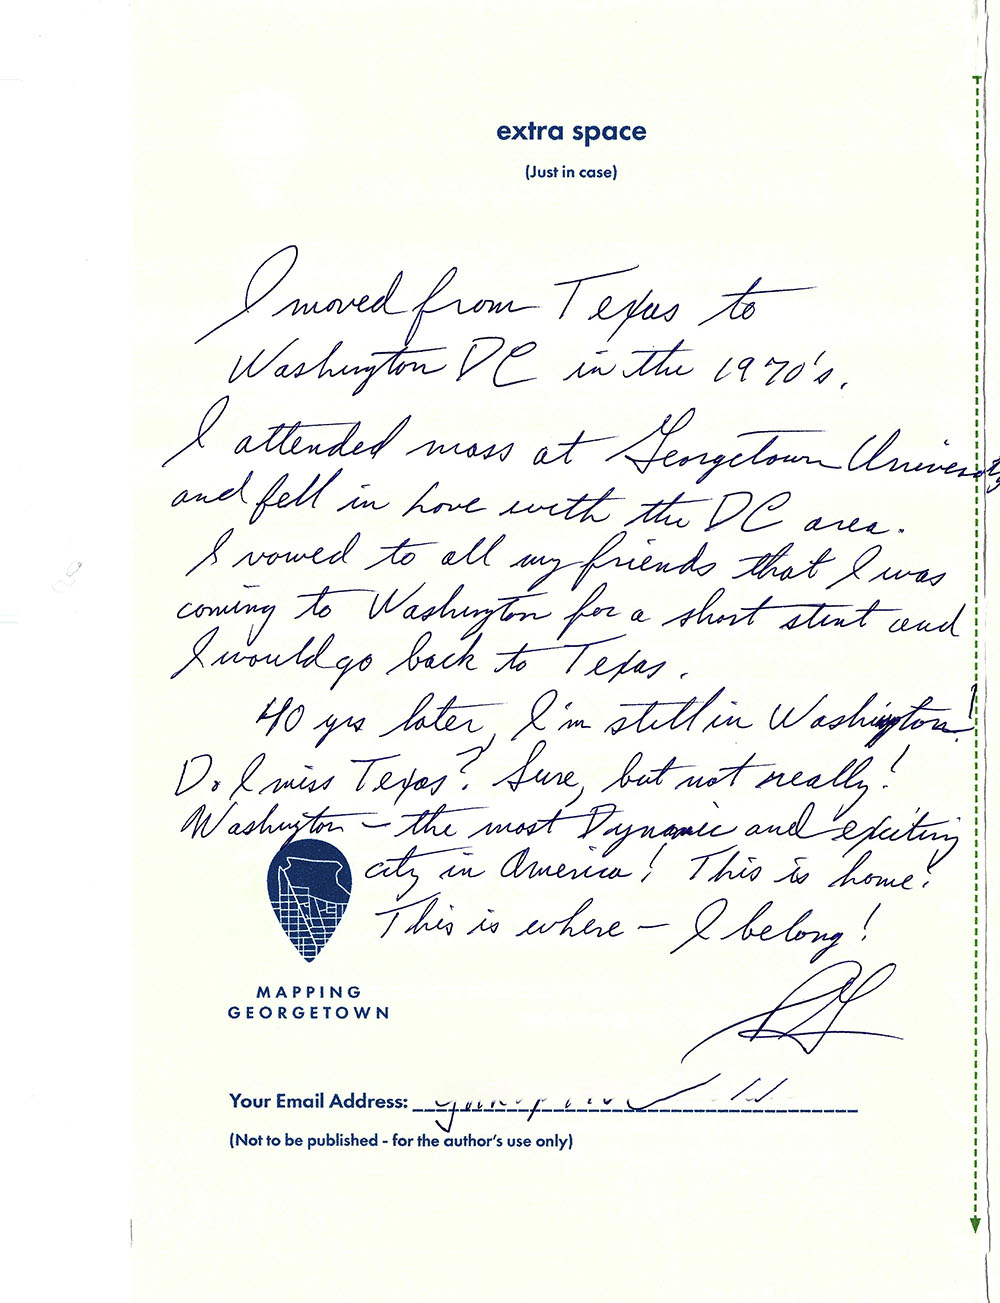 extra space
(Just in case)
I moved from Texas to
Washington DC in the 1970's.
I attended mass at Georgetown University
and fell in Love with the DC area.
I vowed to all my friends that I was
coming to Washington for a short stint and
I would go back to Texas.
40 yrs later, I'm still in Washington!
Do I miss Texas? Sure, but not really!
Washington – the most Dynamic and exciting
city in America! This is home!
This is where – I belong!
MAPPING
GEORGETOWN
Your Email Address:
(Not to be published - for the author's use only)